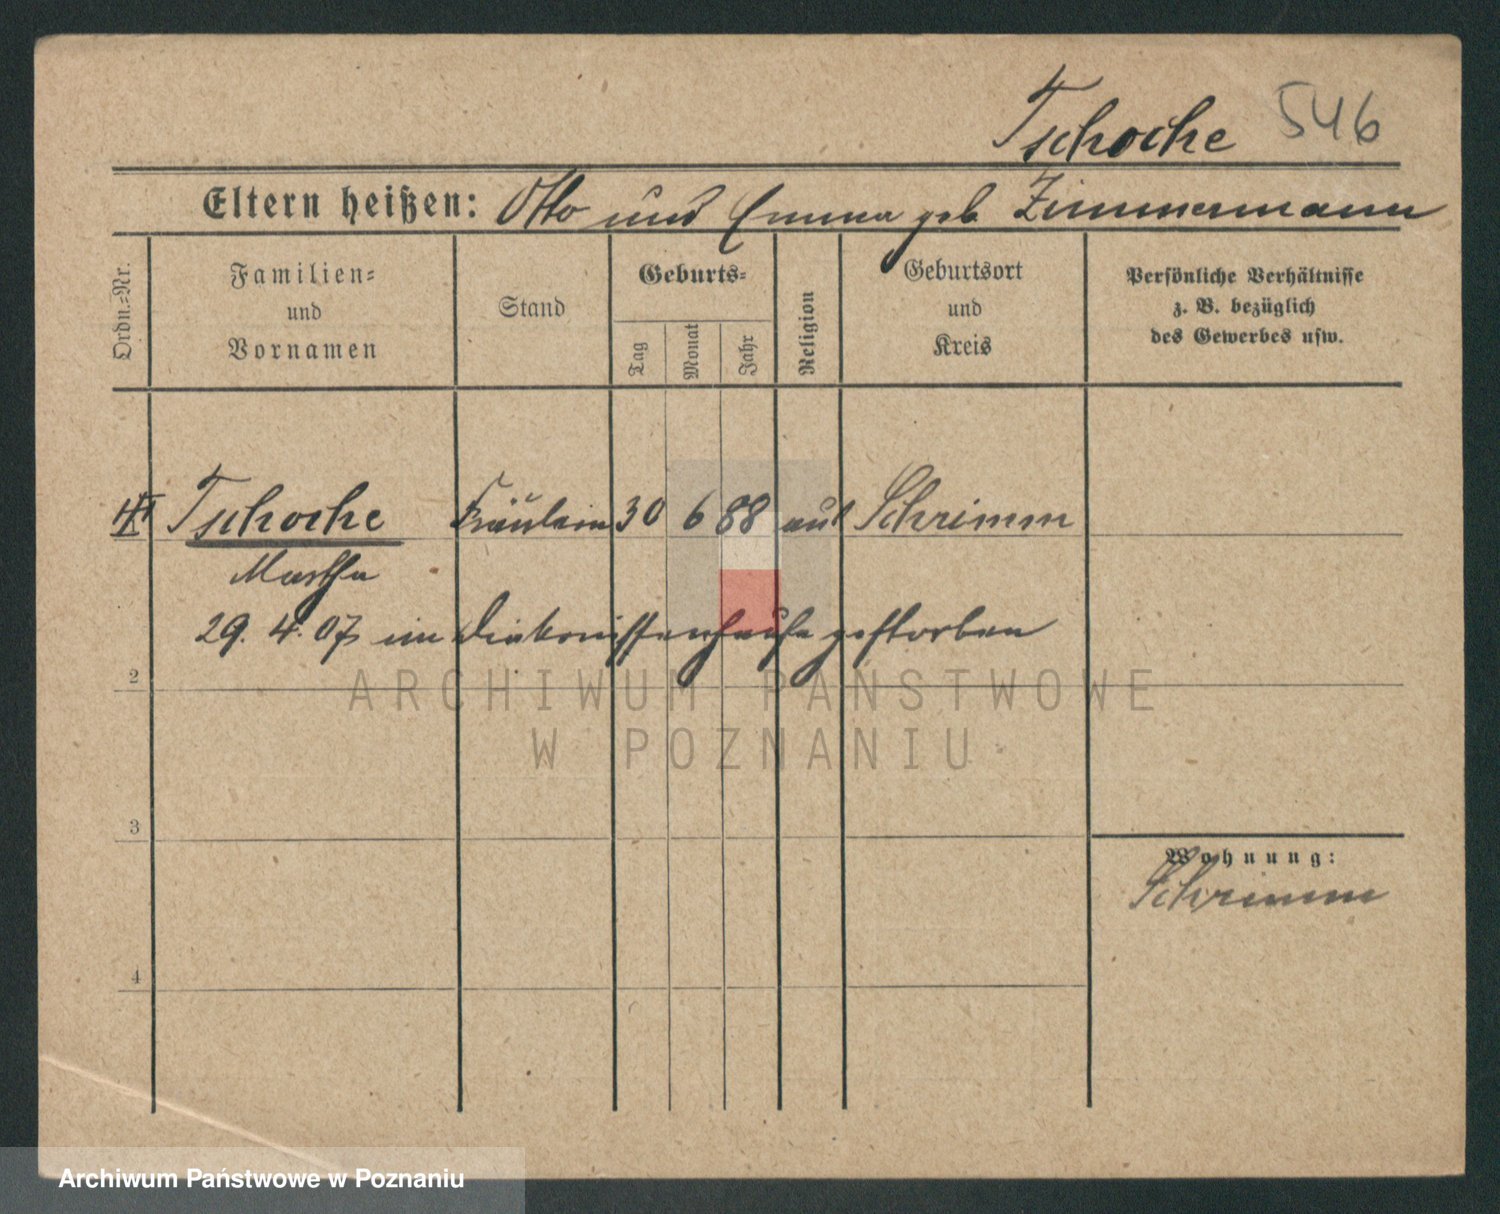 Tschoche 546
Eltern heißen: Otto und Emma geb. Zimmermann
Ordn.-Nr.
Familien-
und
Vornamen
Stand
Geburts-
Tag
Monat
Jahr
Religion
Geburtsort
und
Kreis
Persönliche Verhältnisse
z. B. bezüglich
des Gewerbes usw.
Tschoche Fräulein 30 6 88 Schrimm
Martha
29. 4. 07 im Diakonissenhause gestorben
2
ARCHIWUM PAŃSTWOWE
W POZNANIU
3
Wohnung:
Schrimm
4
Archiwum Państwowe w Poznaniu